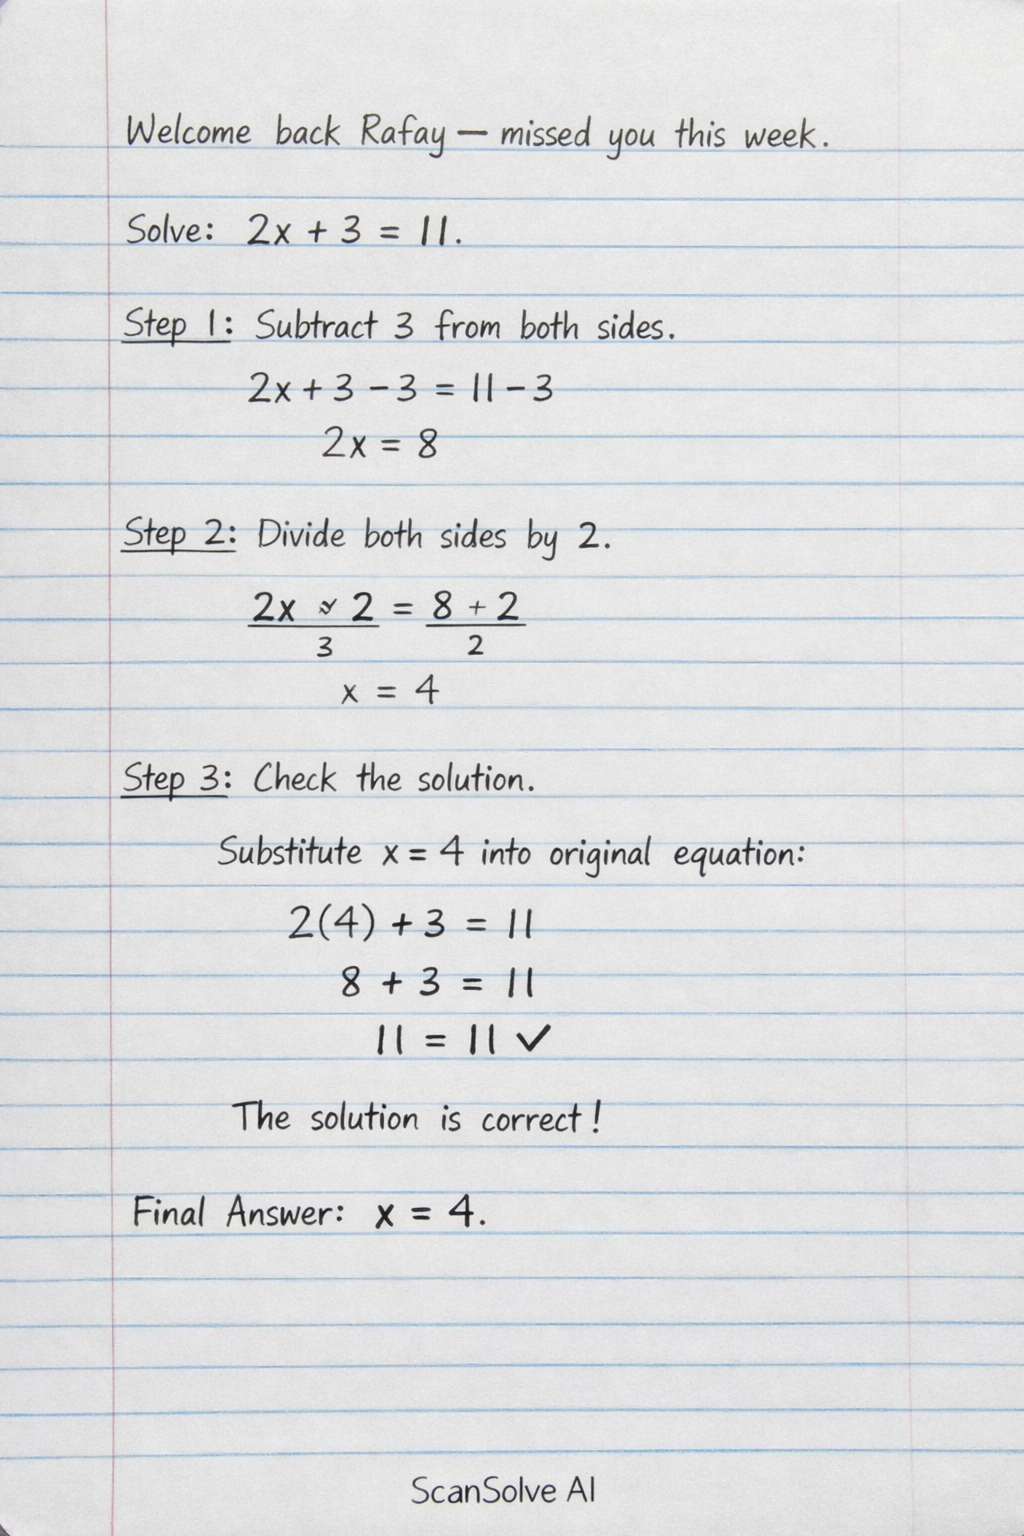 Welcome back Rafay — missed you this week.
Solve: 2x + 3 = 11.
Step 1: Subtract 3 from both sides.
2x + 3 - 3 = 11 - 3
2x = 8
Step 2: Divide both sides by 2.
2x 2 = 8 + 2
3 2
x = 4
Step 3: Check the solution.
Substitute x = 4 into original equation:
2(4) + 3 = 11
8 + 3 = 11
11 = 11 ✓
The solution is correct!
Final Answer: x = 4.
ScanSolve AI